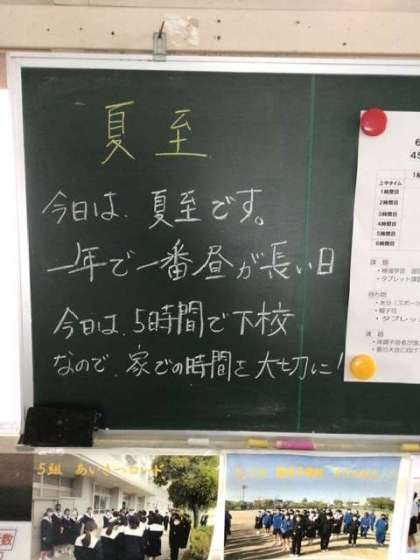 夏至
今日は、夏至です。
一年で一番昼が長い日
今日は、5時間で下校
なので、家での時間を大切に!
6
45
上中タイム
1時間目
2時間目
3時間目
4時間目
5時間目
6時間目
課題
持ち物
連絡
5組 あいさつロード